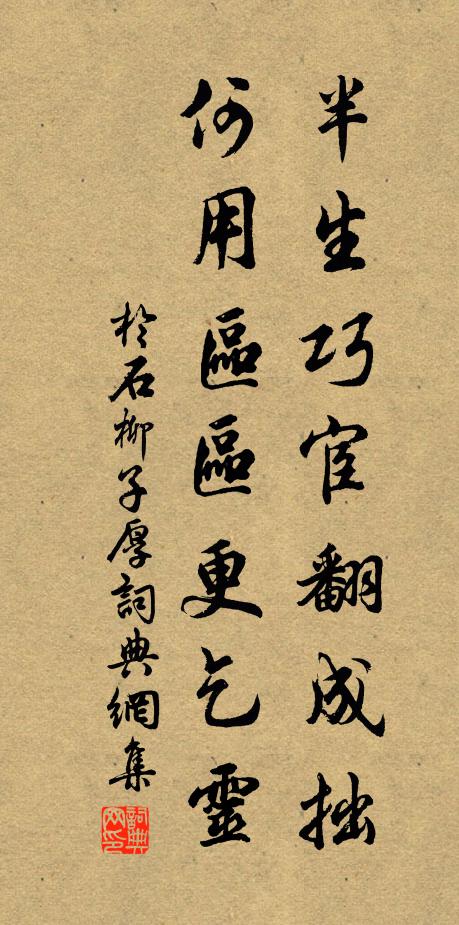 半生巧宦翻成拙
何用區區更乞靈
於石柳子厚詞典網集
詞典
网印